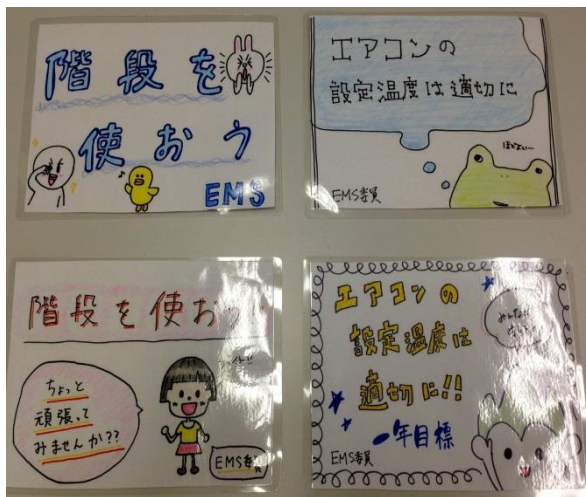 階段を
使おう
EMS
エアコンの
設定温度は適切に
EMS委員
階段を使おう
ちょっと
頑張って
みませんか??
EMS委員
エアコンの
設定温度は
適切に!!
一年目標
EMS委員